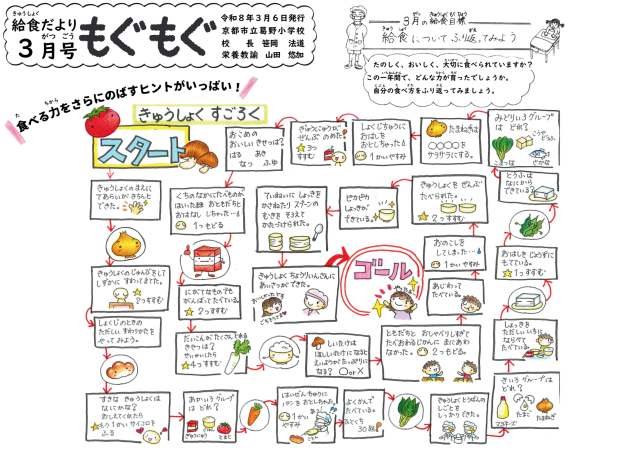 きゅうしょく
給食だより
がつ ごう
3月号
もぐもぐ
令和8年3月6日発行
京都市立葛野小学校
校長 笹岡 法道
栄養教諭 山田 悠加
3月の給食目標
給食についてふり返ってみよう
たのしく、おいしく、大切に食べられていますか？
この一年間で、どんな力が育ったでしょうか。
自分の食べ方をふり返ってみましょう。
食べる力をさらにのばすヒントがいっぱい！
きゅうしょく すごろく
スタート
きゅうしょくのまえに
てあらいが きちんと
できた。
きゅうしょくのじゅんびをして
しずかに すわってまてた。
2つすすむ
しょくじのときの
ただしい すわりかたを
やってみよう。
すきな きゅうしょくは
なにかな？
おしえてくれたら
もう1かいサイコロを
ふる
あかいろグループ
は どれ？
ぎゅうにゅう
とまと
はいぜんちゅうに
パンを おとしちゃった。
1かい
やすみ
よくかんで
たべている。
ひとくち
30回！
きゅうしょくとうばんの
しごとを
しっかりできた。
きいろグループは
どれ？
マヨネーズ
たまご
たまねぎ
しょっきを
ただしい いちに
ならべて
たべている。
おはしを じょうずに
もてている。
1つすすむ
とうふは
なにから
できている？
みどりいろグループ
は どれ？
こまつな
さかな
たまねぎは
〇〇〇〇を
サラサラにする。
しょくじちゅうに
おはしを
おとしちゃった
1かいやすみ
ぎゅうにゅうが
ぜんぶ のめた！
3つ
すすむ
おこめの
おいしい きせつは？
はる あき
なつ ふゆ
くちのなかにたべものが
はいった時 おともだちと
おはなし しちゃった…
1つもどる
にがてなものでも
がんばってたべている。
2つすすむ
だいこんが たくさんとれる
きせつは？
せいかいしたら
4つすすむ
しいたけは
ほしいたけになると
えいようがたっぷりに
なる？ OorX
ともだちと おしゃべりしすぎて
たべおわるじかんに まにあわ
なかった。 2つもどる
あじわって
たべている。
おのこしを
してしまった…
1かいやすみ
きゅうしょくを ぜんぶ
たべられた。
2つすすむ
ピカピカ
しょっきが
できている。
ていねいに しょっきを
かさねたり スプーンの
むきを そろえて
かたづけられた。
きゅうしょく ちょうりいんさんに
あいさつができた。
おいしかったです
ごちそうさま
ゴール
やったぁー